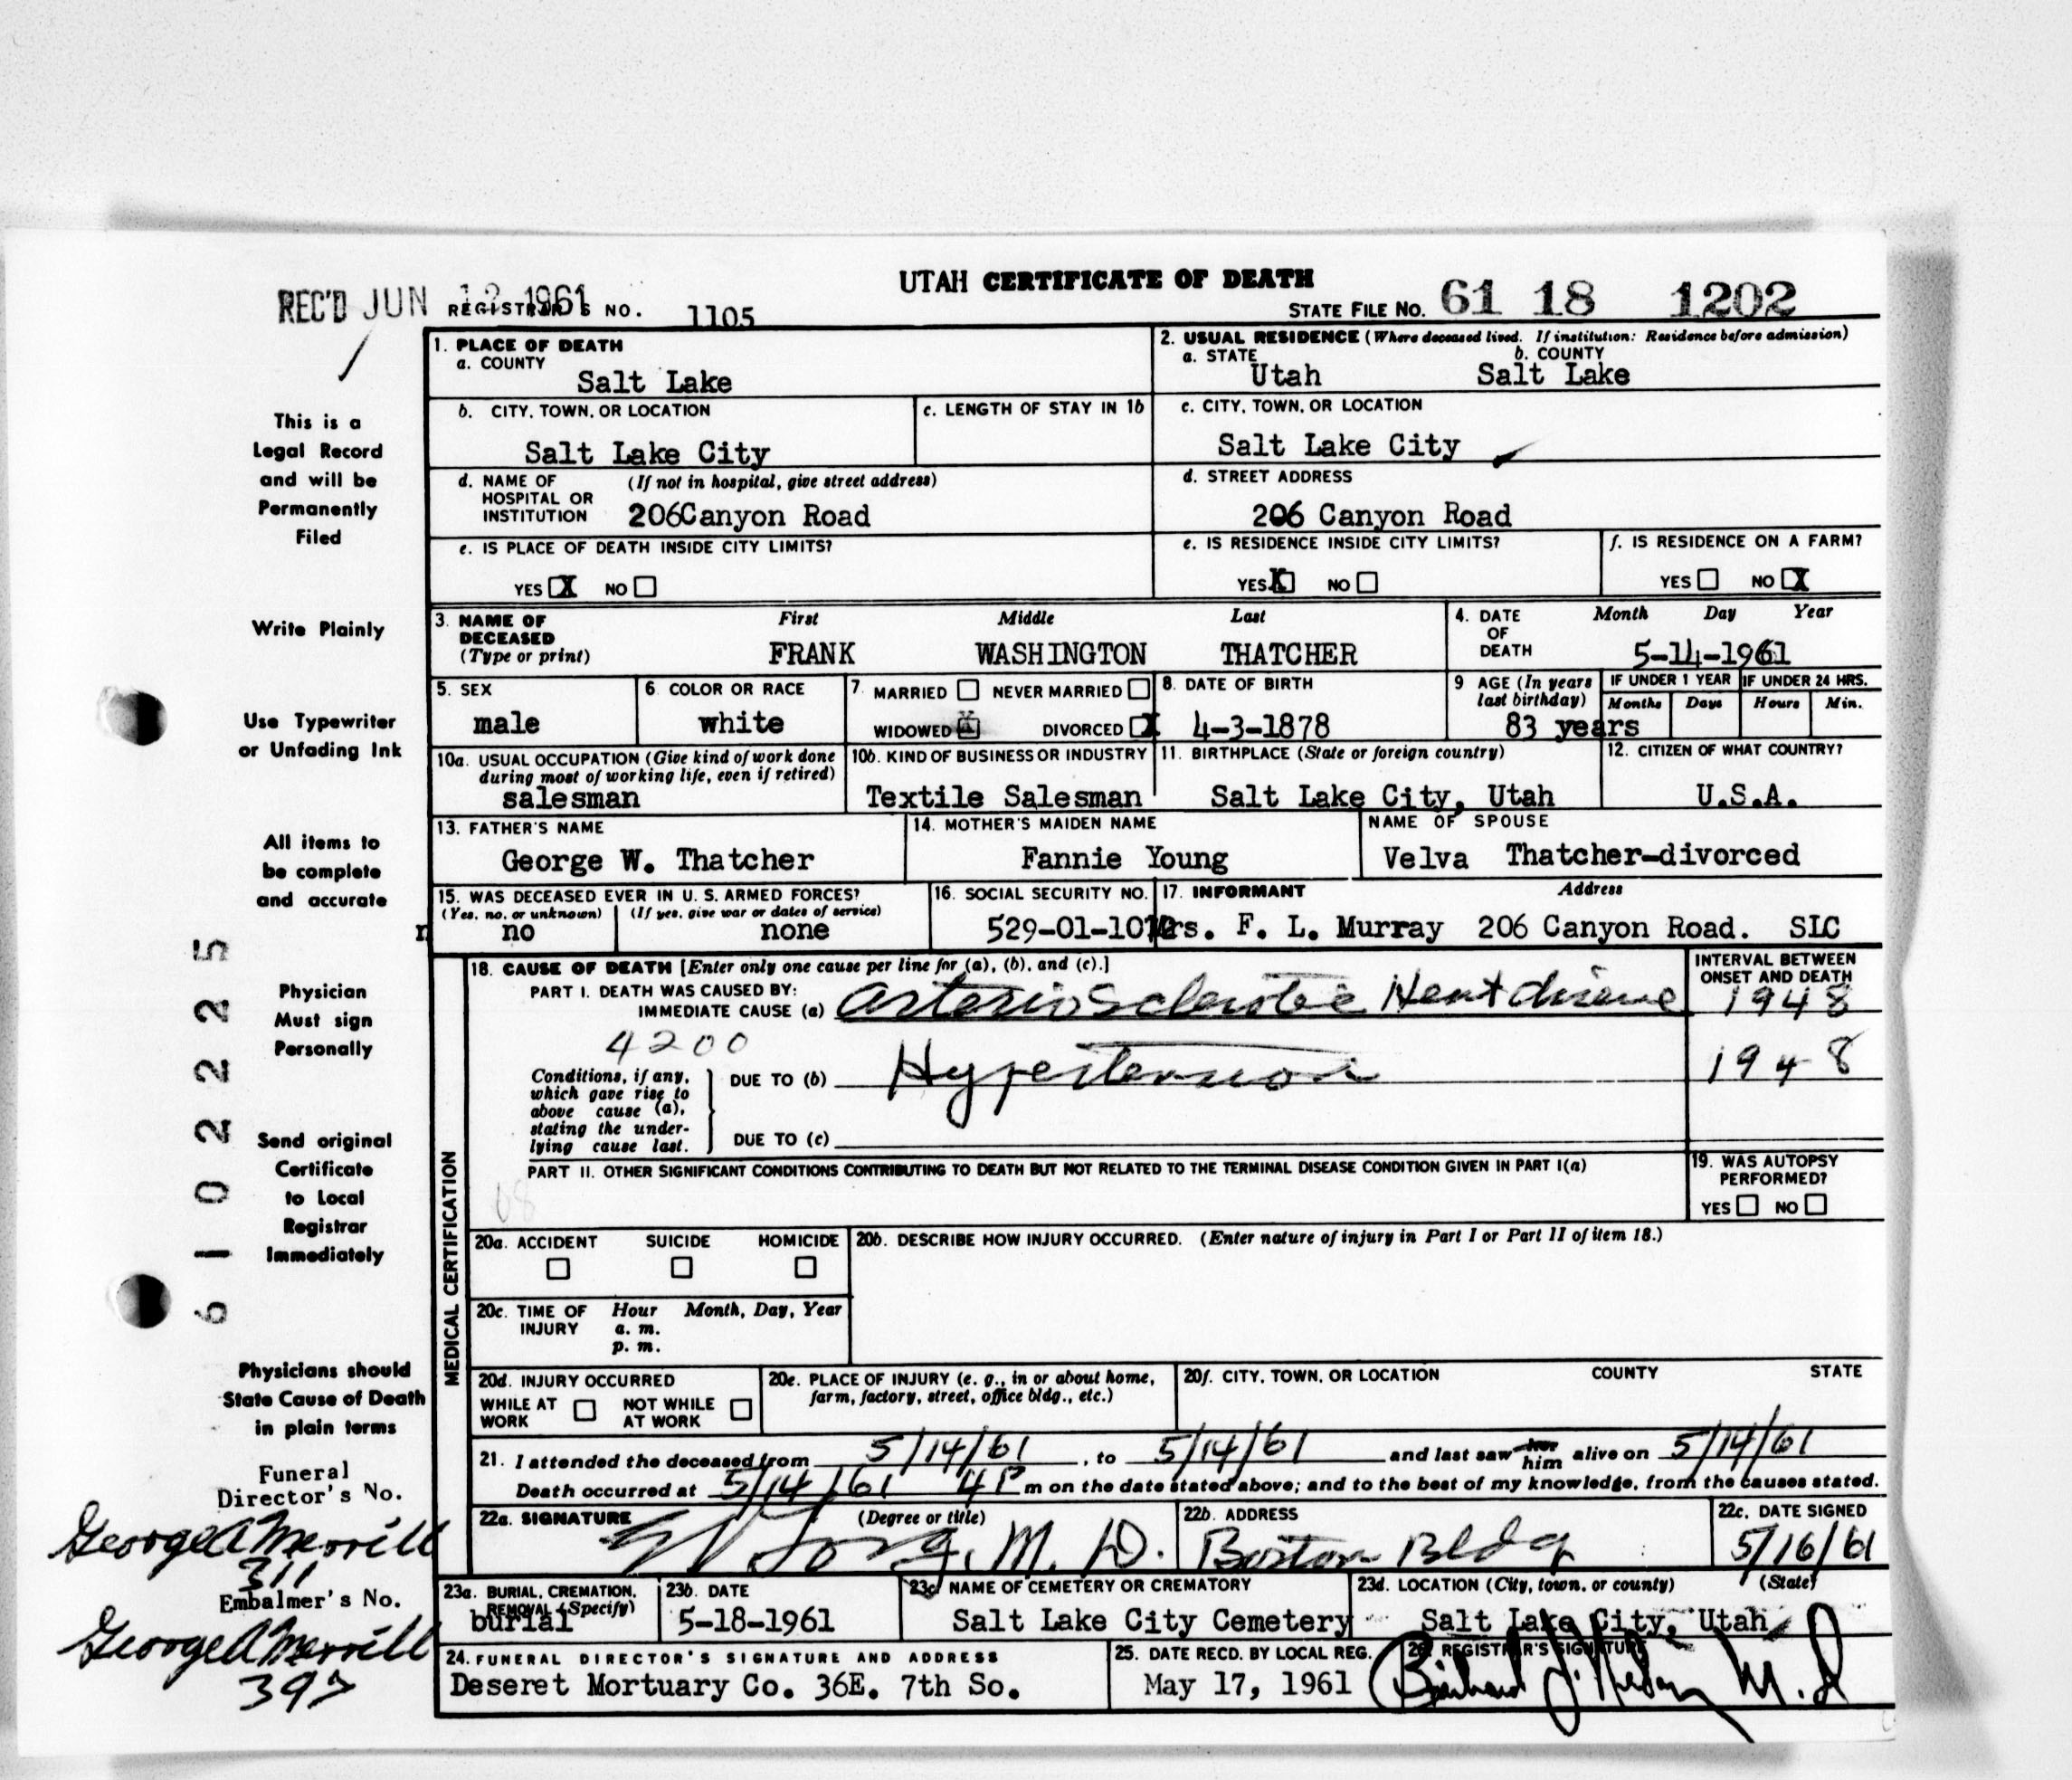 UTAH CERTIFICATE OF DEATH
REC'D JUN 12 1961 REGISTRAR'S NO. 1105 STATE FILE NO. 61 18 1202
1. PLACE OF DEATH
a. COUNTY
Salt Lake
2. USUAL RESIDENCE (Where deceased lived. If institution: Residence before admission)
a. STATE b. COUNTY
Utah Salt Lake
b. CITY, TOWN, OR LOCATION
Salt Lake City
c. LENGTH OF STAY IN 1b
c. CITY, TOWN, OR LOCATION
Salt Lake City
d. NAME OF HOSPITAL OR INSTITUTION (If not in hospital, give street address)
206Canyon Road
d. STREET ADDRESS
206 Canyon Road
e. IS PLACE OF DEATH INSIDE CITY LIMITS?
YES X NO
e. IS RESIDENCE INSIDE CITY LIMITS?
YES X NO
f. IS RESIDENCE ON A FARM?
YES NO X
3. NAME OF DECEASED (Type or print)
First Middle Last
FRANK WASHINGTON THATCHER
4. DATE OF DEATH Month Day Year
5-14-1961
5. SEX
male
6. COLOR OR RACE
white
7. MARRIED NEVER MARRIED
WIDOWED X DIVORCED X
8. DATE OF BIRTH
4-3-1878
9 AGE (In years last birthday)
83 years
IF UNDER 1 YEAR IF UNDER 24 HRS.
Months Days Hours Min.
10a. USUAL OCCUPATION (Give kind of work done during most of working life, even if retired)
salesman
10b. KIND OF BUSINESS OR INDUSTRY
Textile Salesman
11. BIRTHPLACE (State or foreign country)
Salt Lake City, Utah
12. CITIZEN OF WHAT COUNTRY?
U.S.A.
13. FATHER'S NAME
George W. Thatcher
14. MOTHER'S MAIDEN NAME
Fannie Young
NAME OF SPOUSE
Velva Thatcher-divorced
15. WAS DECEASED EVER IN U. S. ARMED FORCES?
(Yes, no, or unknown) (If yes, give war or dates of service)
n no none
16. SOCIAL SECURITY NO.
529-01-10
17. INFORMANT Address
Mrs. F. L. Murray 206 Canyon Road. SLC
MEDICAL CERTIFICATION
18. CAUSE OF DEATH [Enter only one cause per line for (a), (b), and (c).]
INTERVAL BETWEEN ONSET AND DEATH
PART I. DEATH WAS CAUSED BY:
IMMEDIATE CAUSE (a) Arteriosclerotic Heart disease 1948
4200
Conditions, if any, which gave rise to above cause (a), stating the underlying cause last.
DUE TO (b) Hypertension 1948
DUE TO (c)
PART II. OTHER SIGNIFICANT CONDITIONS CONTRIBUTING TO DEATH BUT NOT RELATED TO THE TERMINAL DISEASE CONDITION GIVEN IN PART I(a)
19. WAS AUTOPSY PERFORMED?
YES NO
20a. ACCIDENT SUICIDE HOMICIDE
20b. DESCRIBE HOW INJURY OCCURRED. (Enter nature of injury in Part I or Part II of item 18.)
20c. TIME OF INJURY Hour Month, Day, Year
a. m.
p. m.
20d. INJURY OCCURRED
WHILE AT WORK NOT WHILE AT WORK
20e. PLACE OF INJURY (e. g., in or about home, farm, factory, street, office bldg., etc.)
20f. CITY, TOWN, OR LOCATION COUNTY STATE
21. I attended the deceased from 5/14/61, to 5/14/61 and last saw her him alive on 5/14/61
Death occurred at 5/14/61 4P m on the date stated above; and to the best of my knowledge, from the causes stated.
22a. SIGNATURE (Degree or title)
M. D.
22b. ADDRESS
Boston Bldg
22c. DATE SIGNED
5/16/61
23a. BURIAL, CREMATION, REMOVAL (Specify)
burial
23b. DATE
5-18-1961
23c. NAME OF CEMETERY OR CREMATORY
Salt Lake City Cemetery
23d. LOCATION (City, town, or county) (State)
Salt Lake City, Utah
24. FUNERAL DIRECTOR'S SIGNATURE AND ADDRESS
Deseret Mortuary Co. 36E. 7th So.
25. DATE RECD. BY LOCAL REG.
May 17, 1961
26. REGISTRAR'S SIGNATURE
M.D
This is a
Legal Record
and will be
Permanently
Filed
Write Plainly
Use Typewriter
or Unfading Ink
All items to
be complete
and accurate
Physician
Must sign
Personally
Send original
Certificate
to Local
Registrar
Immediately
Physicians should
State Cause of Death
in plain terms
Funeral
Director's No.
George A Merrill
311
Embalmer's No.
George A Merrill
397
61 02225